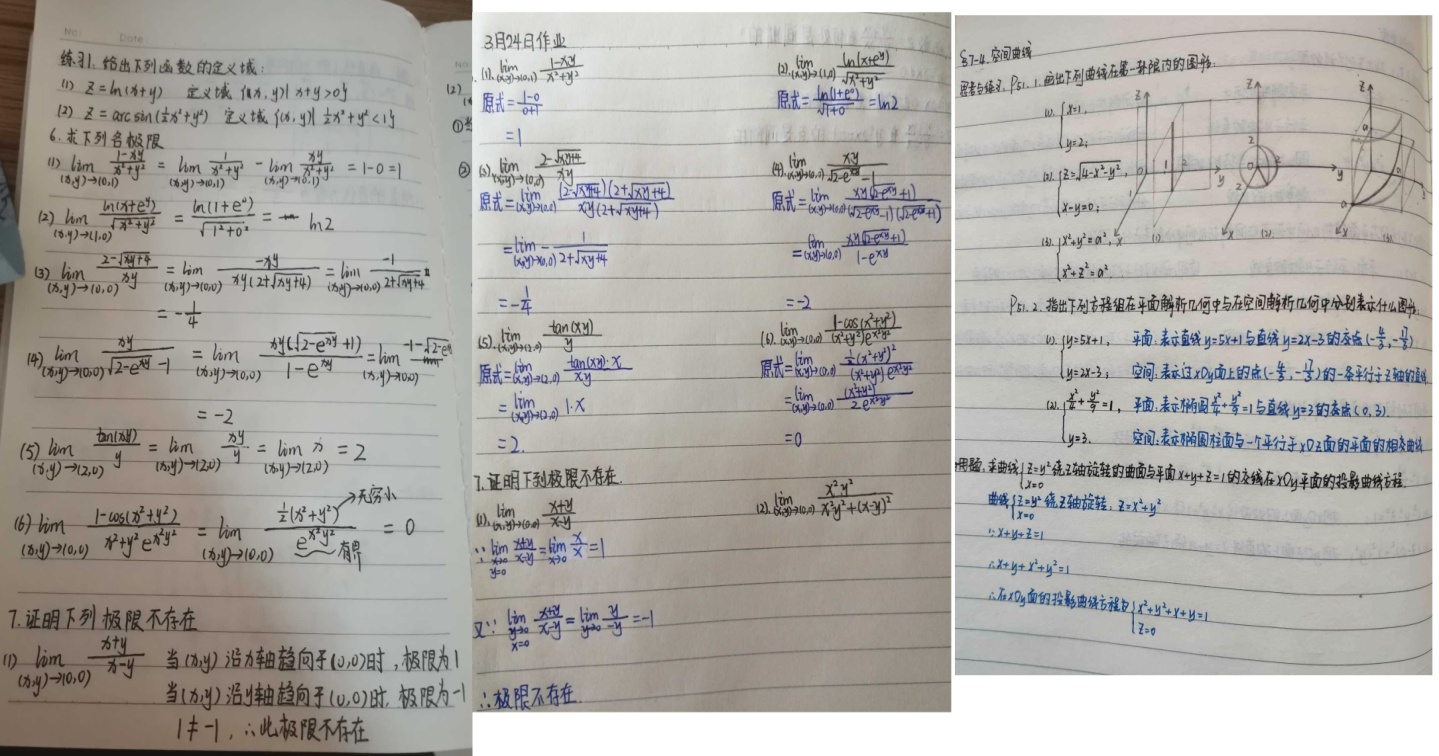 No: Date:
练习1. 给出下列函数的定义域:
(1) z=ln(x+y) 定义域 {(x,y)| x+y>0}
(2) z=arcsin(½x²+y²) 定义域 {(x,y)| ½x²+y²<1}
6. 求下列各极限
(1) lim (x,y)→(0,1) (1-xy)/(x²+y²) = lim (x,y)→(0,1) 1/(x²+y²) - lim (x,y)→(0,1) xy/(x²+y²) = 1-0=1
(2) lim (x,y)→(1,0) ln(x+e^y)/√(x²+y²) = ln(1+e⁰)/√(1²+0²) = ln2
(3) lim (x,y)→(0,0) (2-√(xy+4))/xy = lim (x,y)→(0,0) -xy/(xy(2+√(xy+4))) = lim (x,y)→(0,0) -1/(2+√(xy+4))
= -1/4
(4) lim (x,y)→(0,0) xy/(√(2-e^xy) -1) = lim (x,y)→(0,0) xy(√(2-e^xy)+1)/(1-e^xy) = lim (x,y)→(0,0) -1-√(2-e^xy)
= -2
(5) lim (x,y)→(2,0) tan(xy)/y = lim (x,y)→(2,0) xy/y = lim (x,y)→(2,0) x = 2
(6) lim (x,y)→(0,0) (1-cos(x²+y²))/(x²+y² e^(x²y²)) = lim (x,y)→(0,0) ½(x²+y²)/e^(x²y²) = 0
无穷小
有界
7. 证明下列极限不存在
(1) lim (x,y)→(0,0) (x+y)/(x-y) 当(x,y)沿x轴趋向于(0,0)时,极限为1
当(x,y)沿y轴趋向于(0,0)时,极限为-1
1≠-1, ∴此极限不存在
3月24日作业
(1). lim (x,y)→(0,1) (1-xy)/(x²+y²) (2). lim (x,y)→(1,0) ln(x+e^y)/√(x²+y²)
原式=(1-0)/(0+1) 原式=ln(1+e⁰)/√(1+0) =ln2
=1
(3). lim (x,y)→(0,0) (2-√(xy+4))/xy (4). lim (x,y)→(0,0) xy/(√(2-e^xy) -1)
原式=lim (x,y)→(0,0) (2-√(xy+4))(2+√(xy+4))/(xy(2+√(xy+4))) 原式=lim (x,y)→(0,0) xy(√(2-e^xy)+1)/((√(2-e^xy)-1)(√(2-e^xy)+1))
=lim (x,y)→(0,0) - 1/(2+√(xy+4)) =lim (x,y)→(0,0) xy(√(2-e^xy)+1)/(1-e^xy)
=-1/4 =-2
(5). lim (x,y)→(2,0) tan(xy)/y (6). lim (x,y)→(0,0) (1-cos(x²+y²))/((x²+y²)e^(x²y²))
原式=lim (x,y)→(2,0) tan(xy)·x/xy 原式=lim (x,y)→(0,0) ½(x²+y²)²/((x²+y²)e^(x²y²))
=lim (x,y)→(2,0) 1·x =lim (x,y)→(0,0) (x²+y²)/(2e^(x²y²))
=2. =0
7. 证明下列极限不存在.
(1). lim (x,y)→(0,0) (x+y)/(x-y) (2). lim (x,y)→(0,0) x²y²/(x²y²+(x-y)²)
∵ lim x→0 y=0 (x+y)/(x-y) = lim x→0 x/x =1
又∵ lim y→0 x=0 (x+y)/(x-y) = lim y→0 y/-y =-1
∴极限不存在.
§7-4. 空间曲线
思考与练习. P51. 1. 画出下列曲线在第一卦限内的图形.
(1). {x=1,
y=2;
(2). {z=√(4-x²-y²),
x-y=0;
(3). {x²+y²=a²,
x²+z²=a².
z 1 2 0 y x (1)
z 2 0 2 y x (2)
z a 0 y a x (3)
P51. 2. 指出下列方程组在平面解析几何中与在空间解析几何中分别表示什么图形.
(1). {y=5x+1, 平面:表示直线y=5x+1与直线y=2x-3的交点(-4/3,-17/3)
y=2x-3, 空间:表示过xOy面上的点(-4/3,-17/3)的一条平行于z轴的直线
(2). {x²/4+y²/9=1, 平面:表示椭圆x²/4+y²/9=1与直线y=3的交点(0,3).
y=3. 空间:表示椭圆柱面与一个平行于xOz面的平面的相交曲线
用题. 求曲线{z=y² x=0 绕z轴旋转的曲面与平面x+y+z=1的交线在xOy平面的投影曲线方程.
曲线{z=y² x=0 绕z轴旋转, z=x²+y²
∵x+y+z=1
∴x+y+x²+y²=1
∴在xOy面的投影曲线方程为{x²+y²+x+y=1
z=0